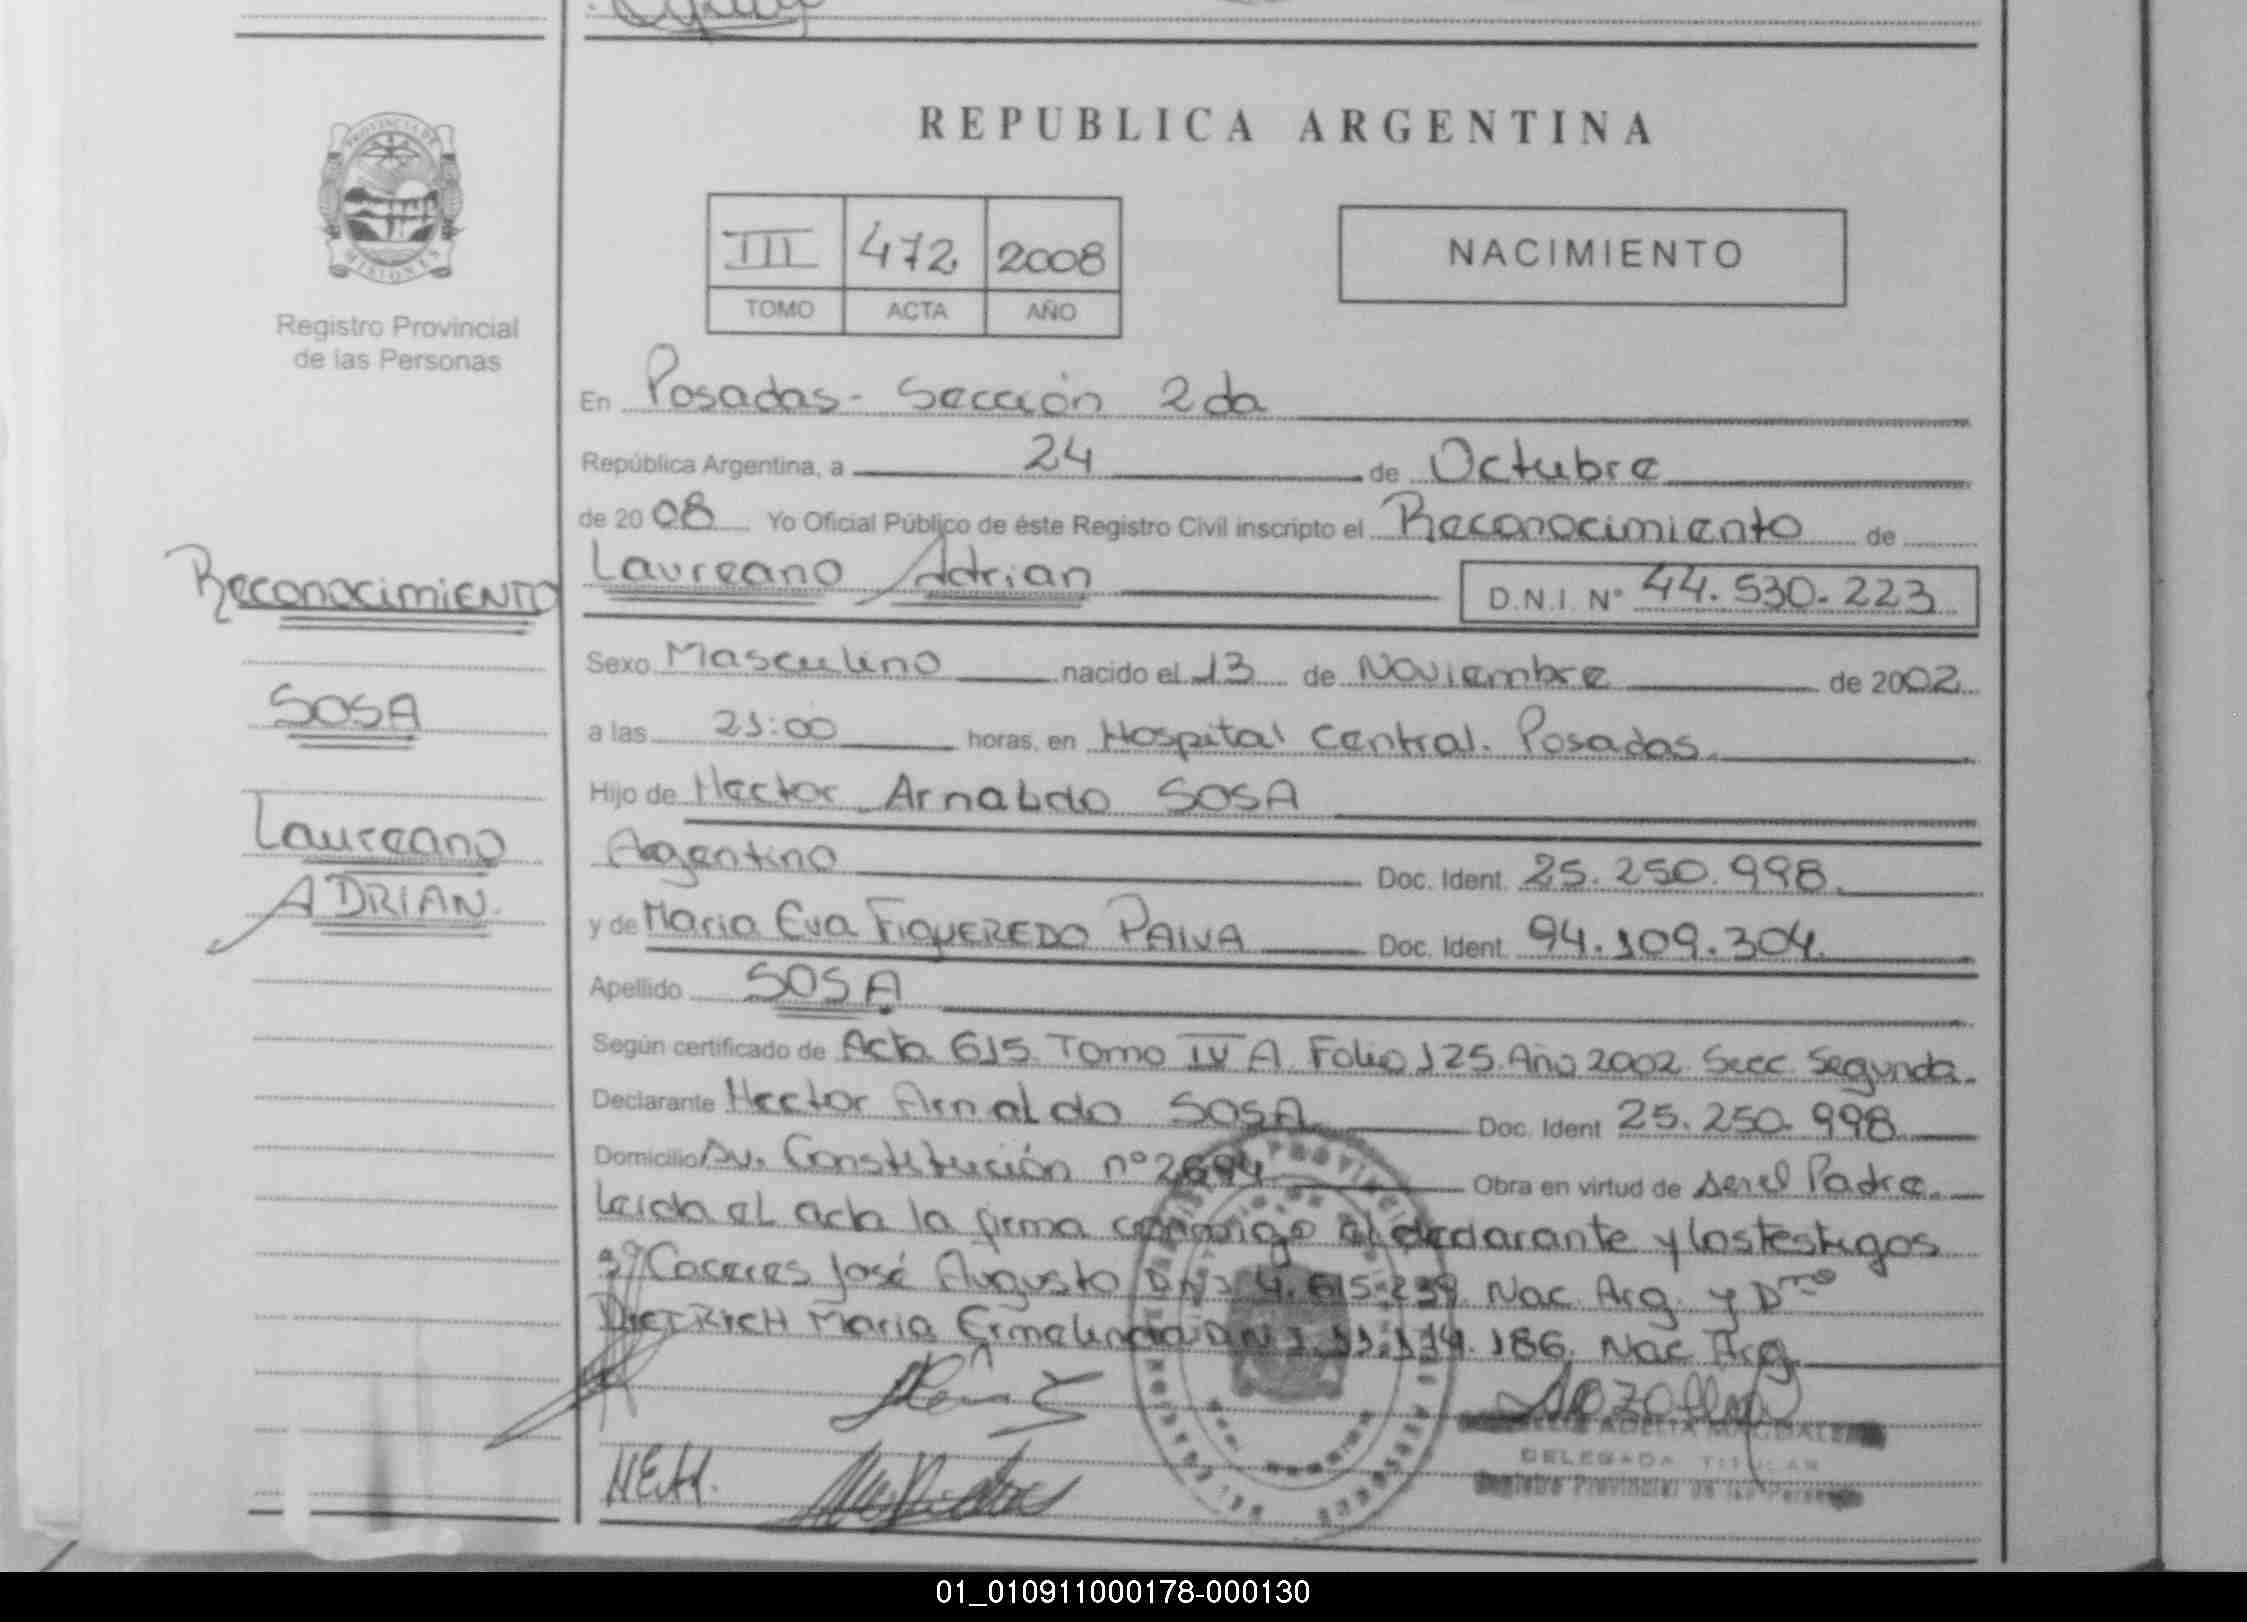 REPUBLICA ARGENTINA
PROVINCIA DE
MISIONES
Registro Provincial
de las Personas
III 472 2008
TOMO ACTA AÑO
NACIMIENTO
En Posadas- Sección 2da
República Argentina, a 24 de Octubre
de 2008 Yo Oficial Público de éste Registro Civil inscripto el Reconocimiento de
Laureano Adrian D.N.I. N° 44.530.223
Reconocimiento
SOSA
Laureano
ADRIAN.
Sexo Masculino nacido el 13 de Noviembre de 2002
a las 21:00 horas, en Hospital Central. Posadas.
Hijo de Hector Arnaldo SOSA
Argentino Doc. Ident. 25.250.998.
y de Maria Eva FIQUEREDO PAIVA Doc. Ident. 94.109.304.
Apellido SOSA
Según certificado de Acta 615. Tomo IV A. Folio 125. Año 2002. Secc. Segunda.
Declarante Hector Arnaldo SOSA Doc. Ident 25.250.998
Domicilio Av. Constitución n° 2694 Obra en virtud de ser el Padre.
Leida el acta la firma conmigo el declarante y los testigos
Caceres José Augusto DNI 4.615.239. Nac. Arg. y
DIETRICH Maria Ermelinda DNI 11.114.186. Nac Arg.
ADELIA MAGDALENA
DELEGADA TITULAR
Registro Provincial de las Personas
01_010911000178-000130